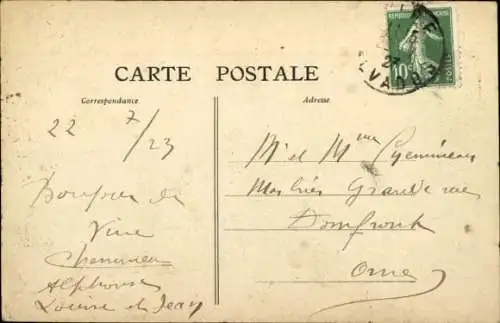 CARTE POSTALE
Correspondance
Adresse
RÉPUBLIQUE FRANÇAISE
10
POSTES
22 7/23
Bonjour de
Vire
Alphonse
Louise et Jean
M et Mme
Grande rue
Domfront
Orne